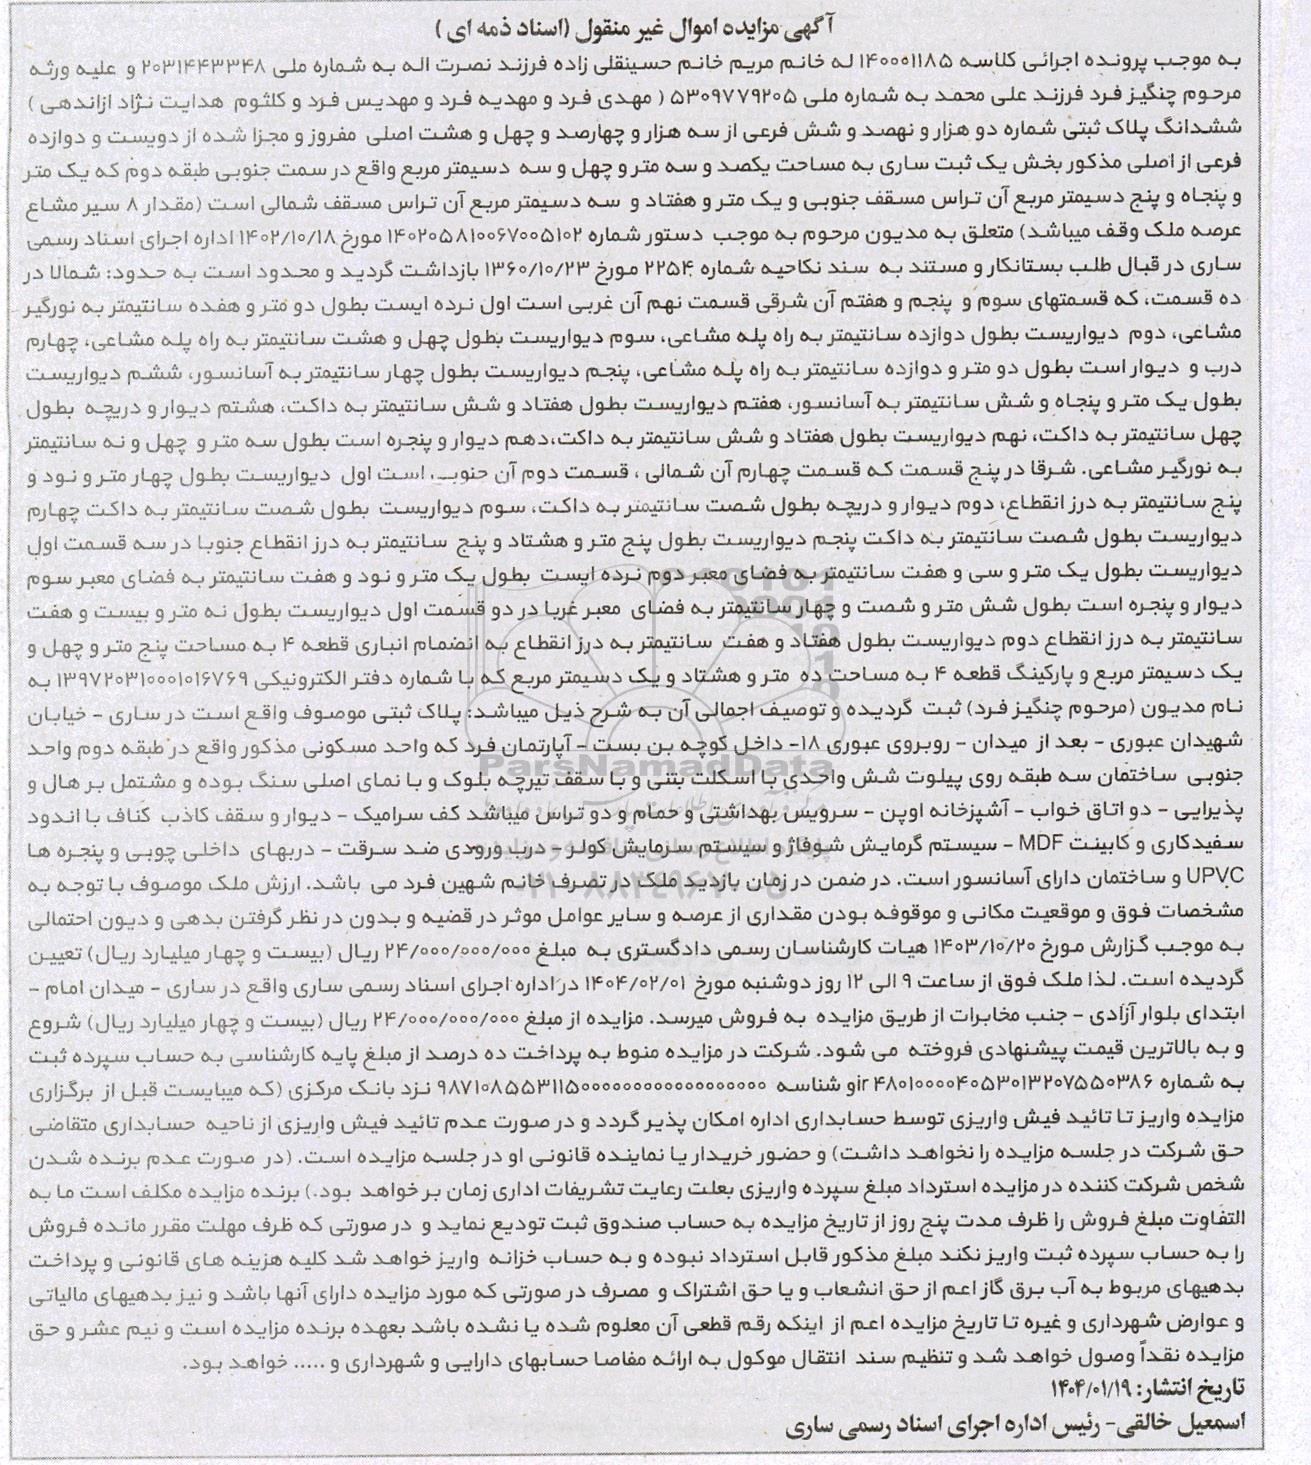 آگهی مزایده اموال غیر منقول (اسناد ذمه ای )
به موجب پرونده اجرائی کلاسه ۱۴۰۰۰۱۱۸۵ له خانم مریم خانم حسینقلی زاده فرزند نصرت اله به شماره ملی ۲۰۳۱۴۴۳۳۴۸ و علیه ورثه
مرحوم چنگیز فرد فرزند علی محمد به شماره ملی ۵۳۰۹۷۷۹۲۰۵ ( مهدی فرد و مهدیه فرد و مهدیس فرد و کلثوم هدایت نژاد ازاندهی )
ششدانگ پلاک ثبتی شماره دو هزار و نهصد و شش فرعی از سه هزار و چهارصد و چهل و هشت اصلی مفروز و مجزا شده از دویست و دوازده
فرعی از اصلی مذکور بخش یک ثبت ساری به مساحت یکصد و سه متر و چهل و سه دسیمتر مربع واقع در سمت جنوبی طبقه دوم که یک متر
و پنجاه و پنج دسیمتر مربع آن تراس مسقف جنوبی و یک متر و هفتاد و سه دسیمتر مربع آن تراس مسقف شمالی است (مقدار ۸ سیر مشاع
عرصه ملک وقف میباشد) متعلق به مدیون مرحوم به موجب دستور شماره ۱۴۰۲۰۵۸۱۰۰۶۷۰۰۵۱۰۲ مورخ ۱۴۰۲/۱۰/۱۸ اداره اجرای اسناد رسمی
ساری در قبال طلب بستانکار و مستند به سند نکاحیه شماره ۲۲۵۴ مورخ ۱۳۶۰/۱۰/۲۳ بازداشت گردید و محدود است به حدود: شمالا در
ده قسمت، که قسمتهای سوم و پنجم و هفتم آن شرقی قسمت نهم آن غربی است اول نرده ایست بطول دو متر و هفده سانتیمتر به نورگیر
مشاعی، دوم دیواریست بطول دوازده سانتیمتر به راه پله مشاعی، سوم دیواریست بطول چهل و هشت سانتیمتر به راه پله مشاعی، چهارم
درب و دیوار است بطول دو متر و دوازده سانتیمتر به راه پله مشاعی، پنجم دیواریست بطول چهار سانتیمتر به آسانسور، ششم دیواریست
بطول یک متر و پنجاه و شش سانتیمتر به آسانسور، هفتم دیواریست بطول هفتاد و شش سانتیمتر به داکت، هشتم دیوار و دریچه بطول
چهل سانتیمتر به داکت، نهم دیواریست بطول هفتاد و شش سانتیمتر به داکت،دهم دیوار و پنجره است بطول سه متر و چهل و نه سانتیمتر
به نورگیر مشاعی. شرقا در پنج قسمت که قسمت چهارم آن شمالی ، قسمت دوم آن جنوبی است اول دیواریست بطول چهار متر و نود و
پنج سانتیمتر به درز انقطاع، دوم دیوار و دریچه بطول شصت سانتیمتر به داکت، سوم دیواریست بطول شصت سانتیمتر به داکت چهارم
دیواریست بطول شصت سانتیمتر به داکت پنجم دیواریست بطول پنج متر و هشتاد و پنج سانتیمتر به درز انقطاع جنوبا در سه قسمت اول
دیواریست بطول یک متر و سی و هفت سانتیمتر به فضای معبر دوم نرده ایست بطول یک متر و نود و هفت سانتیمتر به فضای معبر سوم
دیوار و پنجره است بطول شش متر و شصت و چهار سانتیمتر به فضای معبر غربا در دو قسمت اول دیواریست بطول نه متر و بیست و هفت
سانتیمتر به درز انقطاع دوم دیواریست بطول هفتاد و هفت سانتیمتر به درز انقطاع به انضمام انباری قطعه ۴ به مساحت پنج متر و چهل و
یک دسیمتر مربع و پارکینگ قطعه ۴ به مساحت ده متر و هشتاد و یک دسیمتر مربع که با شماره دفتر الکترونیکی ۱۳۹۷۲۰۳۱۰۰۰۱۰۱۶۷۶۹ به
نام مدیون (مرحوم چنگیز فرد) ثبت گردیده و توصیف اجمالی آن به شرح ذیل میباشد: پلاک ثبتی موصوف واقع است در ساری - خیابان
شهیدان عبوری - بعد از میدان - روبروی عبوری ۱۸- داخل کوچه بن بست - آپارتمان فرد که واحد مسکونی مذکور واقع در طبقه دوم واحد
جنوبی ساختمان سه طبقه روی پیلوت شش واحدی با اسکلت بتنی و با سقف تیرچه بلوک و با نمای اصلی سنگ بوده و مشتمل بر هال و
پذیرایی - دو اتاق خواب - آشپزخانه اوپن - سرویس بهداشتی و حمام و دو تراس میباشد کف سرامیک - دیوار و سقف کاذب کناف با اندود
سفیدکاری و کابینت MDF - سیستم گرمایش شوفاژ و سیستم سرمایش کولر - درب ورودی ضد سرقت - دربهای داخلی چوبی و پنجره ها
UPVC و ساختمان دارای آسانسور است. در ضمن در زمان بازدید ملک در تصرف خانم شهین فرد می باشد. ارزش ملک موصوف با توجه به
مشخصات فوق و موقعیت مکانی و موقوفه بودن مقداری از عرصه و سایر عوامل موثر در قضیه و بدون در نظر گرفتن بدهی و دیون احتمالی
به موجب گزارش مورخ ۱۴۰۳/۱۰/۲۰ هیات کارشناسان رسمی دادگستری به مبلغ ۲۴/۰۰۰/۰۰۰/۰۰۰ ریال (بیست و چهار میلیارد ریال) تعیین
گردیده است. لذا ملک فوق از ساعت ۹ الی ۱۲ روز دوشنبه مورخ ۱۴۰۴/۰۲/۰۱ در اداره اجرای اسناد رسمی ساری واقع در ساری - میدان امام -
ابتدای بلوار آزادی - جنب مخابرات از طریق مزایده به فروش میرسد. مزایده از مبلغ ۲۴/۰۰۰/۰۰۰/۰۰۰ ریال (بیست و چهار میلیارد ریال) شروع
و به بالاترین قیمت پیشنهادی فروخته می شود. شرکت در مزایده منوط به پرداخت ده درصد از مبلغ پایه کارشناسی به حساب سپرده ثبت
به شماره ir۴۸۰۱۰۰۰۰۴۰۵۳۰۱۳۲۰۷۵۵۰۳۸۶ و شناسه نزد بانک مرکزی (که میبایست قبل از برگزاری
مزایده واریز تا تائید فیش واریزی توسط حسابداری اداره امکان پذیر گردد و در صورت عدم تائید فیش واریزی از ناحیه حسابداری متقاضی
حق شرکت در جلسه مزایده را نخواهد داشت) و حضور خریدار یا نماینده قانونی او در جلسه مزایده است. (در صورت عدم برنده شدن
شخص شرکت کننده در مزایده استرداد مبلغ سپرده واریزی بعلت رعایت تشریفات اداری زمان بر خواهد بود.) برنده مزایده مکلف است ما به
التفاوت مبلغ فروش را ظرف مدت پنج روز از تاریخ مزایده به حساب صندوق ثبت تودیع نماید و در صورتی که ظرف مهلت مقرر مانده فروش
را به حساب سپرده ثبت واریز نکند مبلغ مذکور قابل استرداد نبوده و به حساب خزانه واریز خواهد شد کلیه هزینه های قانونی و پرداخت
بدهیهای مربوط به آب برق گاز اعم از حق انشعاب و یا حق اشتراک و مصرف در صورتی که مورد مزایده دارای آنها باشد و نیز بدهیهای مالیاتی
و عوارض شهرداری و غیره تا تاریخ مزایده اعم از اینکه رقم قطعی آن معلوم شده یا نشده باشد بعهده برنده مزایده است و نیم عشر و حق
مزایده نقداً وصول خواهد شد و تنظیم سند انتقال موکول به ارائه مفاصا حسابهای دارایی و شهرداری و ..... خواهد بود.
تاریخ انتشار: ۱۴۰۴/۰۱/۱۹
اسمعیل خالقی- رئیس اداره اجرای اسناد رسمی ساری
ParsNamadData